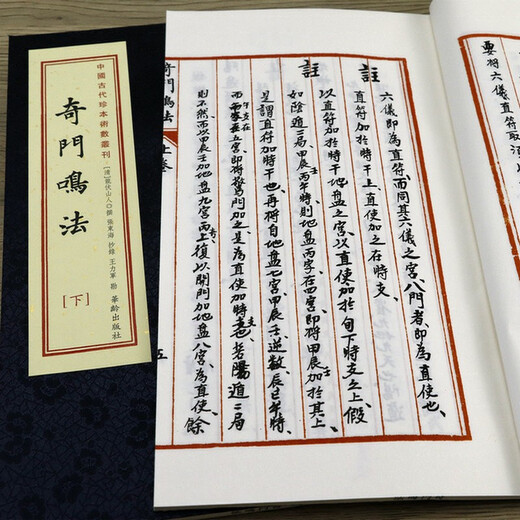 中國古代珍本術數叢刊
奇門鳴法
[清]龍伏山人◎撰 張東海 抄錄 王力軍 勘 華齡出版社
[下]
要符六儀直符取
註 六儀即為直符而同其六儀之宮八門者即為直使也、
直符加於時干上、直使加之在時支、
註 直符加於時干地盤之宮、以直使加於旬下時支之上、假
如陰遁二局、甲辰壬丙午時、則地盤丙字在四宮、即將甲辰加於其上、
是謂直符加時干也、再將自地盤七宮、甲辰壬、逆數、辰巳午時、
午支在五宮、即將驚門加之、是為直使加時支也、若陽遁二局
則不然、而以甲辰壬加地盤九宮丙上、復以開門加地盤八宮、為直使、餘
奇門鳴法
上卷
五